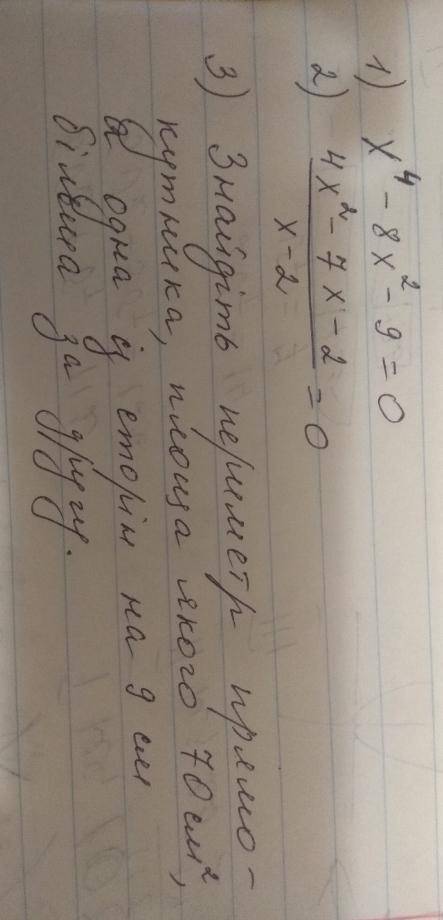 1) x⁴ - 8x² - 9 = 0
2) (4x² - 7x - 2)/(x - 2) = 0
3) Знайдіть периметр прямо-
кутника, площа якого 70 см²,
а одна із сторін на 9 см
більша за другу.